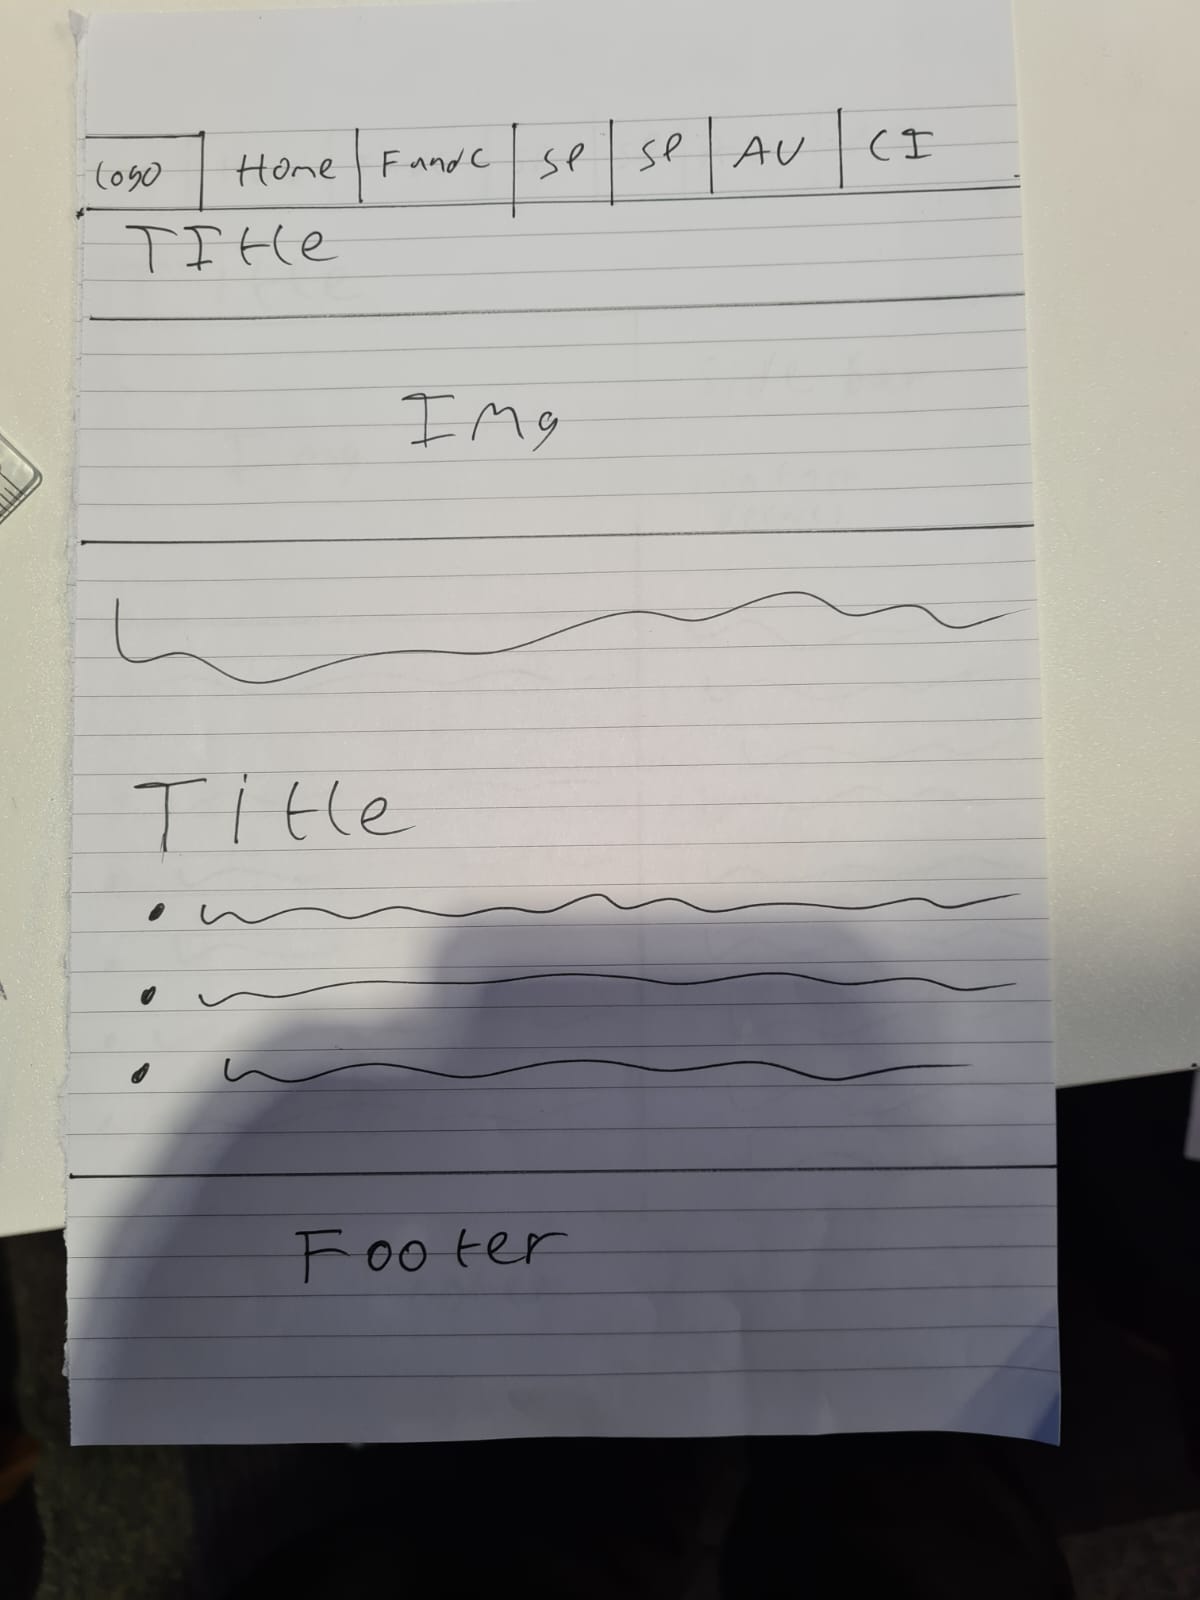 Logo Home FandC SP SP AU CI
TItle
IMg
Title
Footer